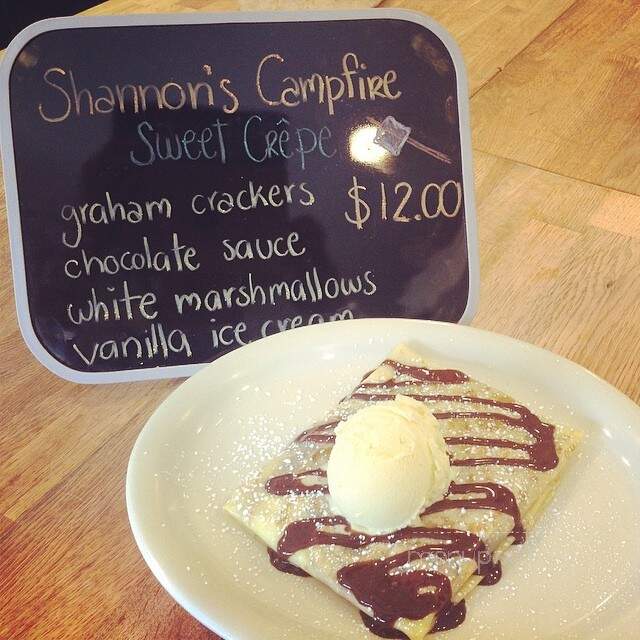 Shannon's Campfire
Sweet Crêpe
$12.00
graham crackers
chocolate sauce
white marshmallows
vanilla ice cream